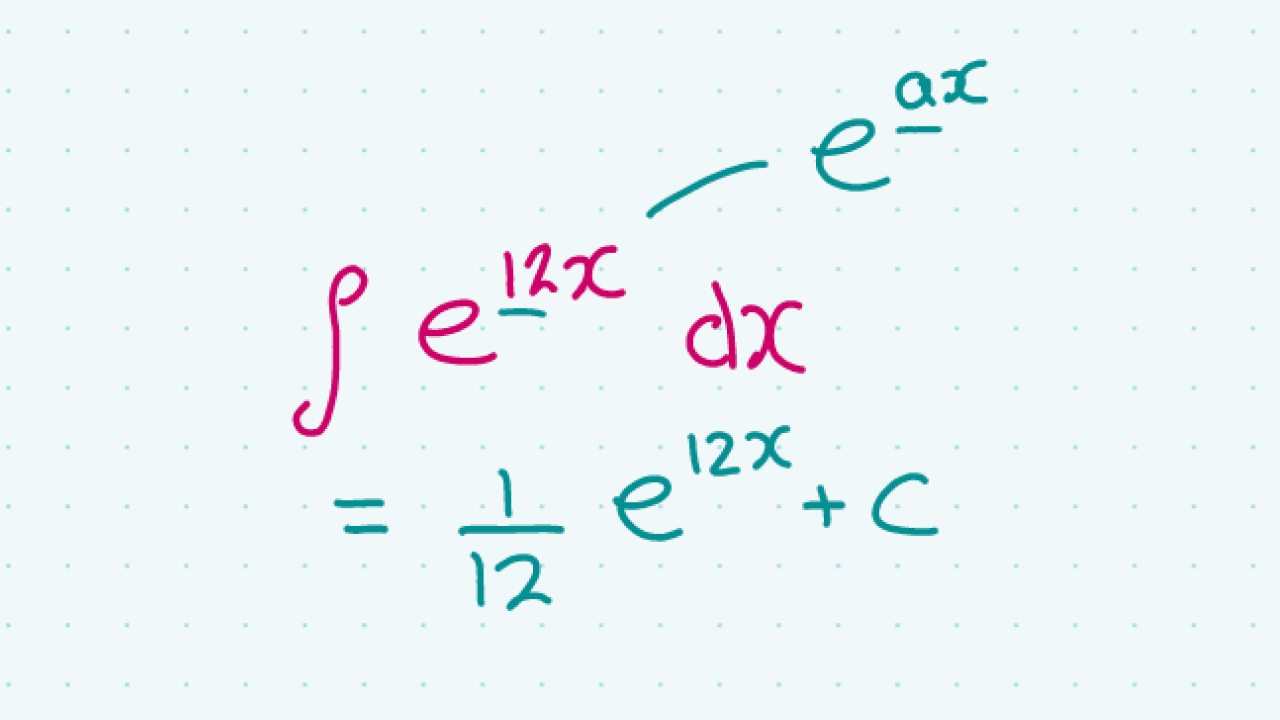 e^{ax}
∫ e^{12x} dx
= \frac{1}{12} e^{12x} + c